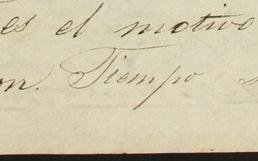 es el motivo
on. Tiempo